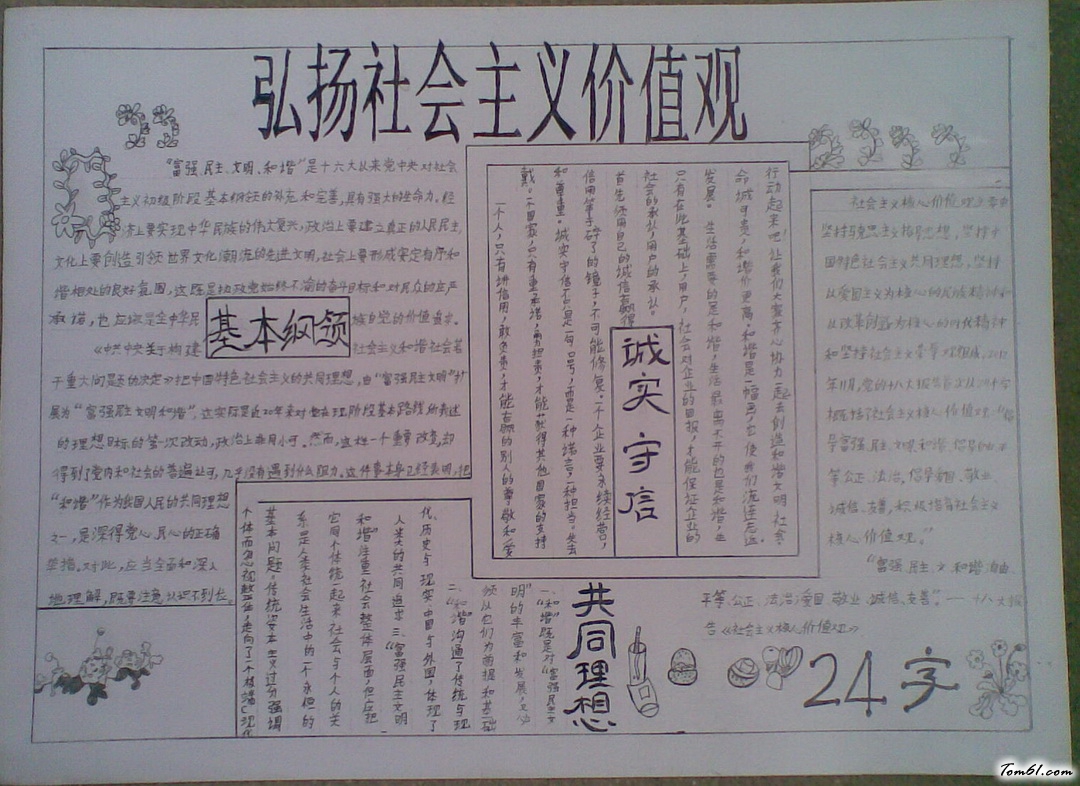 弘扬社会主义价值观
“富强、民主、文明、和谐”是十六大以来党中央对社会
主义初级阶段基本纲领的补充和完善,具有强大的生命力。经
济上要实现中华民族的伟大复兴,政治上要建立真正的人民民主,
文化上要创造引领世界文化潮流的先进文明,社会上要形成安定有序和
谐相处的良好氛围,这既是执政党始终不渝的奋斗目标和对民众的庄严
承诺,也应该是全中华民族自觉的价值追求。
基本纲领
《中共中央关于构建社会主义和谐社会若
于重大问题的决定》把中国特色社会主义的共同理想,由“富强民主文明”扩
展为“富强民主文明和谐”。这实际是近20年来对
的理想目标的第一次改动,政治上非同小可。然而,这样一个重要改变,却
得到了党内和社会的普遍认可,几乎没有遇到什么阻力。这件事本身已经表明,把
“和谐”作为我国人民的共同理想
之一,是深得党心、民心的正确
举措。对此,应当全面和深入
地理解,既要注意认识不到位。
行动起来吧!让我们大家齐心协力一起去创造和谐文明社会,
诚可贵,和谐价更高。和谐是一幅画,它使我们流连忘返
发展。 生活需要的是和谐,生活最离不开的也是和谐,
只有在此基础上,用户,社会对企业的回报,才能保证企业的
社会的承认,用户的承认。
首先须用自己的诚信赢得
信用等于碎了的镜子,不可能修复。一个企业要永续经营,
和尊重。诚实守信不只是一句口号,而是一种诺言,一种担当。失去
戴。一个国家,只有重承诺,勇担责,才能获得其他国家的支持
一个人,只有讲信用,敢负责,才能右的别人的尊敬和爱
诚实守信
社会主义核心价值观
坚持马克思主义指导思想,坚持中
国特色社会主义共同理想,坚持
以爱国主义为核心的民族精神和
以改革创新为核心的时代精神
和坚持社会主义荣辱观组成。2012
年11月,党的十八大报告首次以24个字
概括了社会主义核心价值观:“倡
导富强、民主、文明、和谐,倡导自由、平
等、公正、法治,倡导爱国、敬业、
诚信、友善,积极培育社会主义
核心价值观。”
“富强、民主、文、和谐、自由、
平等、公正、法治、爱国、敬业、诚信、友善”——十八大报
告《社会主义核心价值观》
24字
共同理想
一、“和谐”既是对“富强民主文
明”的丰富和发展,又必
须以它们为前提和基础
二、“和谐”沟通了传统与现
代、历史与现实、中国与外国,体现了
人类的共同追求 三、“富强民主文明
和谐”注重社会整体层面,但应把
它同个体统一起来 社会与个人的关
系是人类社会生活中的一个永恒的
基本问题,传统资本主义过分强调
个体而忽视整体,走向了一个极端(现代
Tom61.com